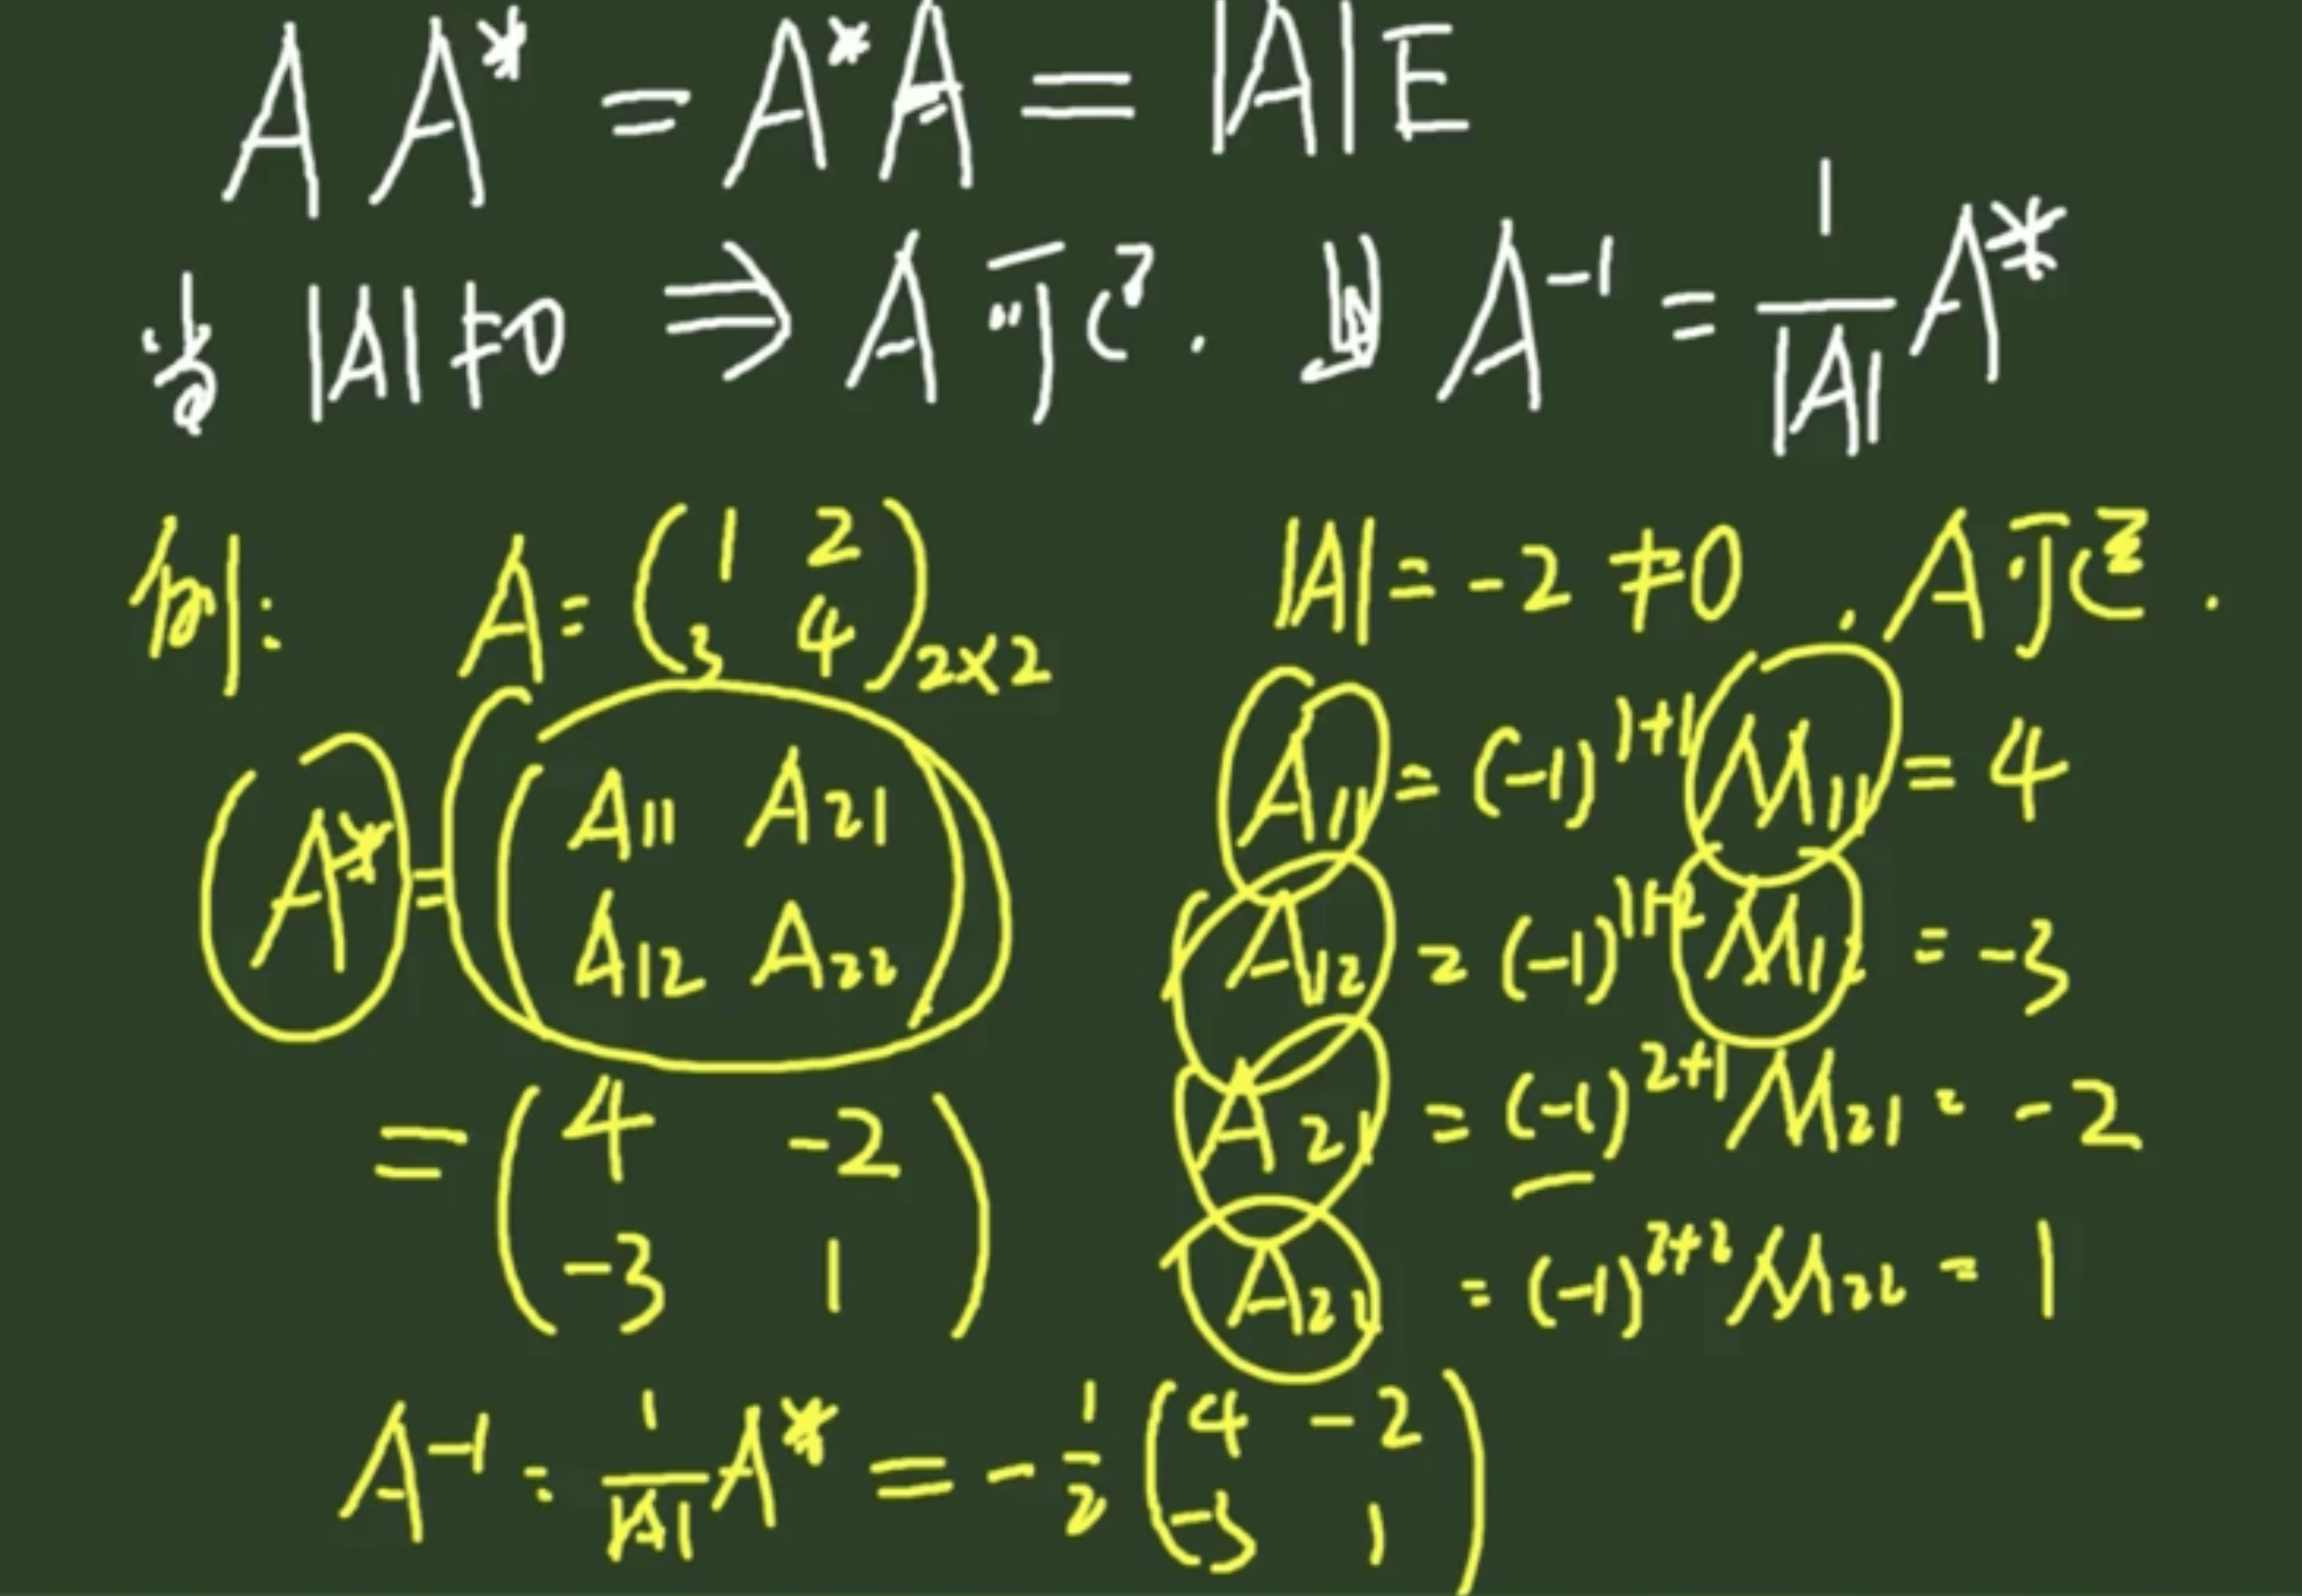 A A* = A*A = |A|E
当 |A|≠0 ⇒ A 可逆. 则 A⁻¹ = 1/|A| A*
例: A = (1 2; 3 4)₂ₓ₂ |A| = -2 ≠ 0, A可逆.
A* = (A₁₁ A₂₁; A₁₂ A₂₂) A₁₁ = (-1)¹⁺¹ M₁₁ = 4
A₁₂ = (-1)¹⁺² M₁₂ = -3
= (4 -2; -3 1) A₂₁ = (-1)²⁺¹ M₂₁ = -2
A₂₂ = (-1)²⁺² M₂₂ = 1
A⁻¹ = 1/|A| A* = -1/2 (4 -2; -3 1)